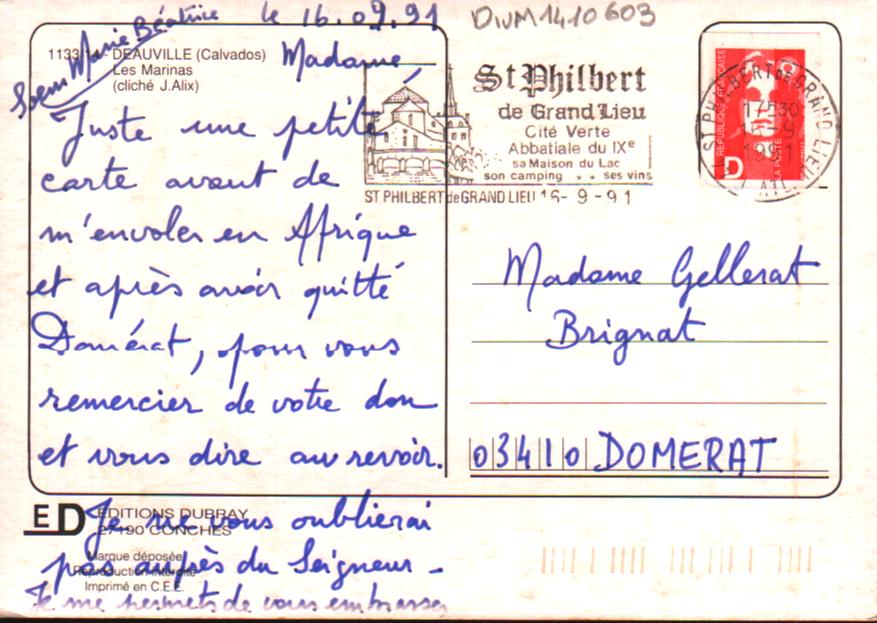 le 16.09.91
DIVM1410603
Soeur Marie Béatrice
1133/14 - DEAUVILLE (Calvados)
Les Marinas
(cliché J.Alix)
Madame,
Juste une petite
carte avant de
m'envoler en Afrique
et après avoir quitté
Domérat, pour vous
remercier de votre don
et vous dire au revoir.
Je ne vous oublierai
pas auprès du Seigneur -
Je me permets de vous embrasser
ED EDITIONS DUBRAY
27190 CONCHES
Marque déposée
Reproduction interdite
Imprimé en C.E.E.
St Philbert
de Grand Lieu
Cité Verte
Abbatiale du IXe
sa Maison du Lac
son camping * * ses vins
ST PHILBERT de GRAND LIEU 16 - 9 - 91
REPUBLIQUE FRANÇAISE
LA POSTE
D
ST PHILBERT DE GRAND LIEU
17H30
16-9
1991
Madame Gellerat
Brignat
03410 DOMERAT